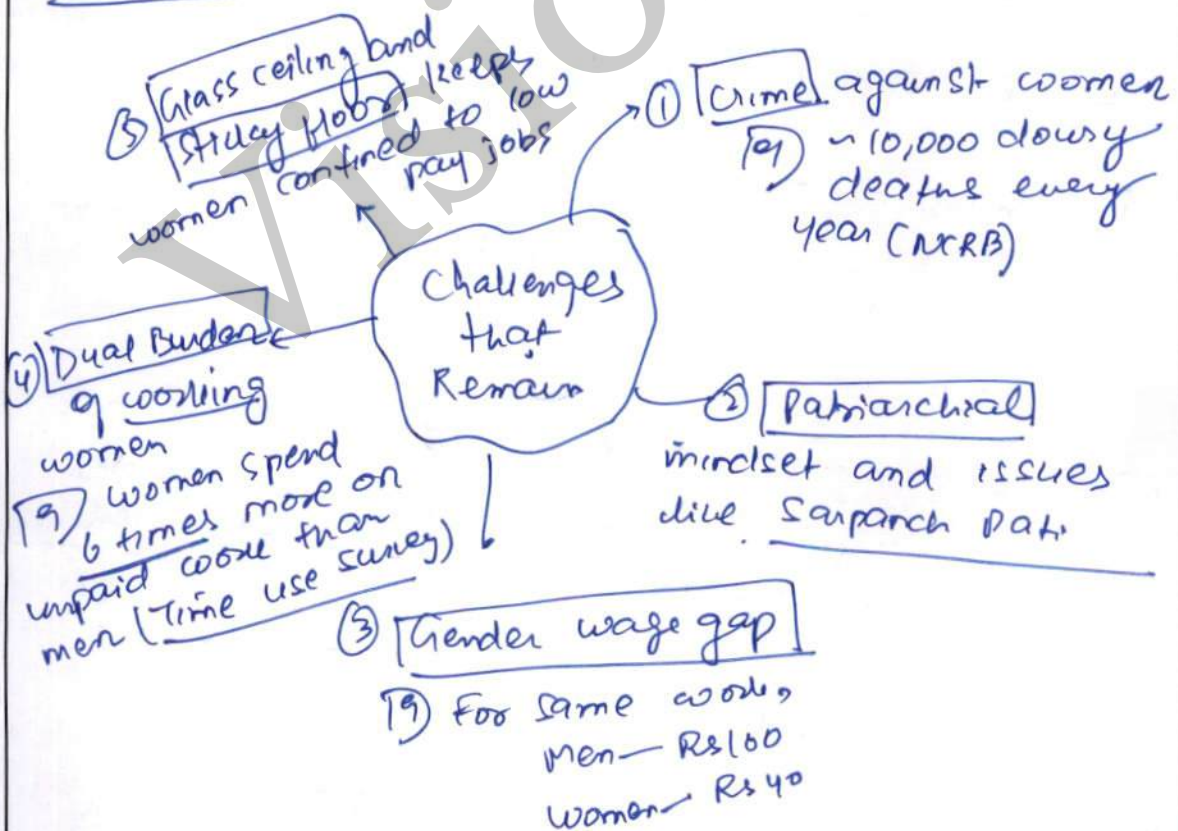 Challenges
that
Remain
① Crime against women
eg ~10,000 dowry
deaths every
year (NCRB)
② Patriarchial
mindset and issues
like Sarpanch Pati.
③ Gender wage gap
eg For same work,
Men — Rs 100
Women — Rs 40
④ Dual Burden
of working
women
eg women spend
6 times more on
unpaid work than
men (Time use survey)
⑤ Glass ceiling and
sticky floor keeps
women confined to low
pay jobs
Visio